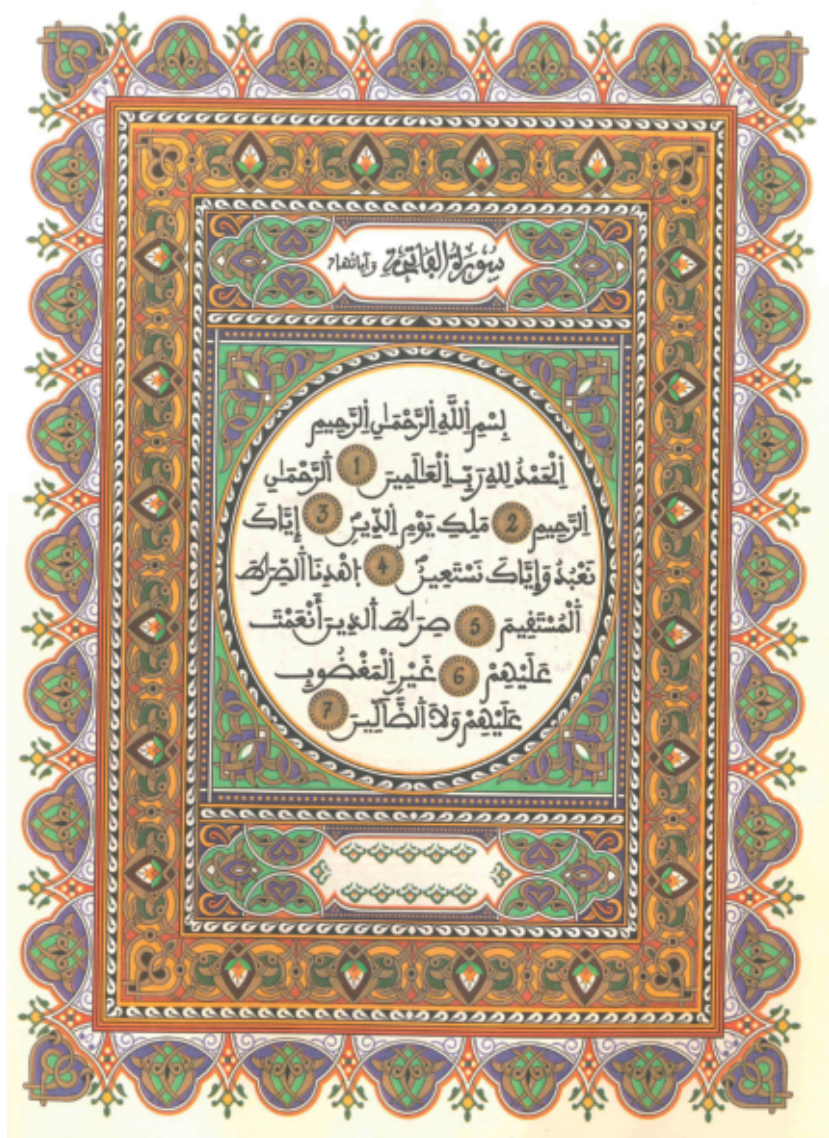 سُورَةُ الْفَاتِحَةِ وَآيَاتُهَا 7
بِسْمِ اِ۬للَّهِ اِ۬لرَّحْمَٰنِ اِ۬لرَّحِيمِ
اِ۬لْحَمْدُ لِلهِ رَبِّ اِ۬لْعَٰلَمِينَ 1 اَ۬لرَّحْمَٰنِ
اِ۬لرَّحِيمِ 2 مَلِكِ يَوْمِ اِ۬لدِّينِ 3 إِيَّاكَ
نَعْبُدُ وَإِيَّاكَ نَسْتَعِينُ 4 اِ۪هْدِنَا اَ۬لصِّرَٰطَ
اَ۬لْمُسْتَقِيمَ 5 صِرَٰطَ اَ۬لذِينَ أَنْعَمْتَ
عَلَيْهِمْ 6 غَيْرِ اِ۬لْمَغْضُوبِ
عَلَيْهِمْ وَلَا اَ۬لضَّآلِّينَ 7